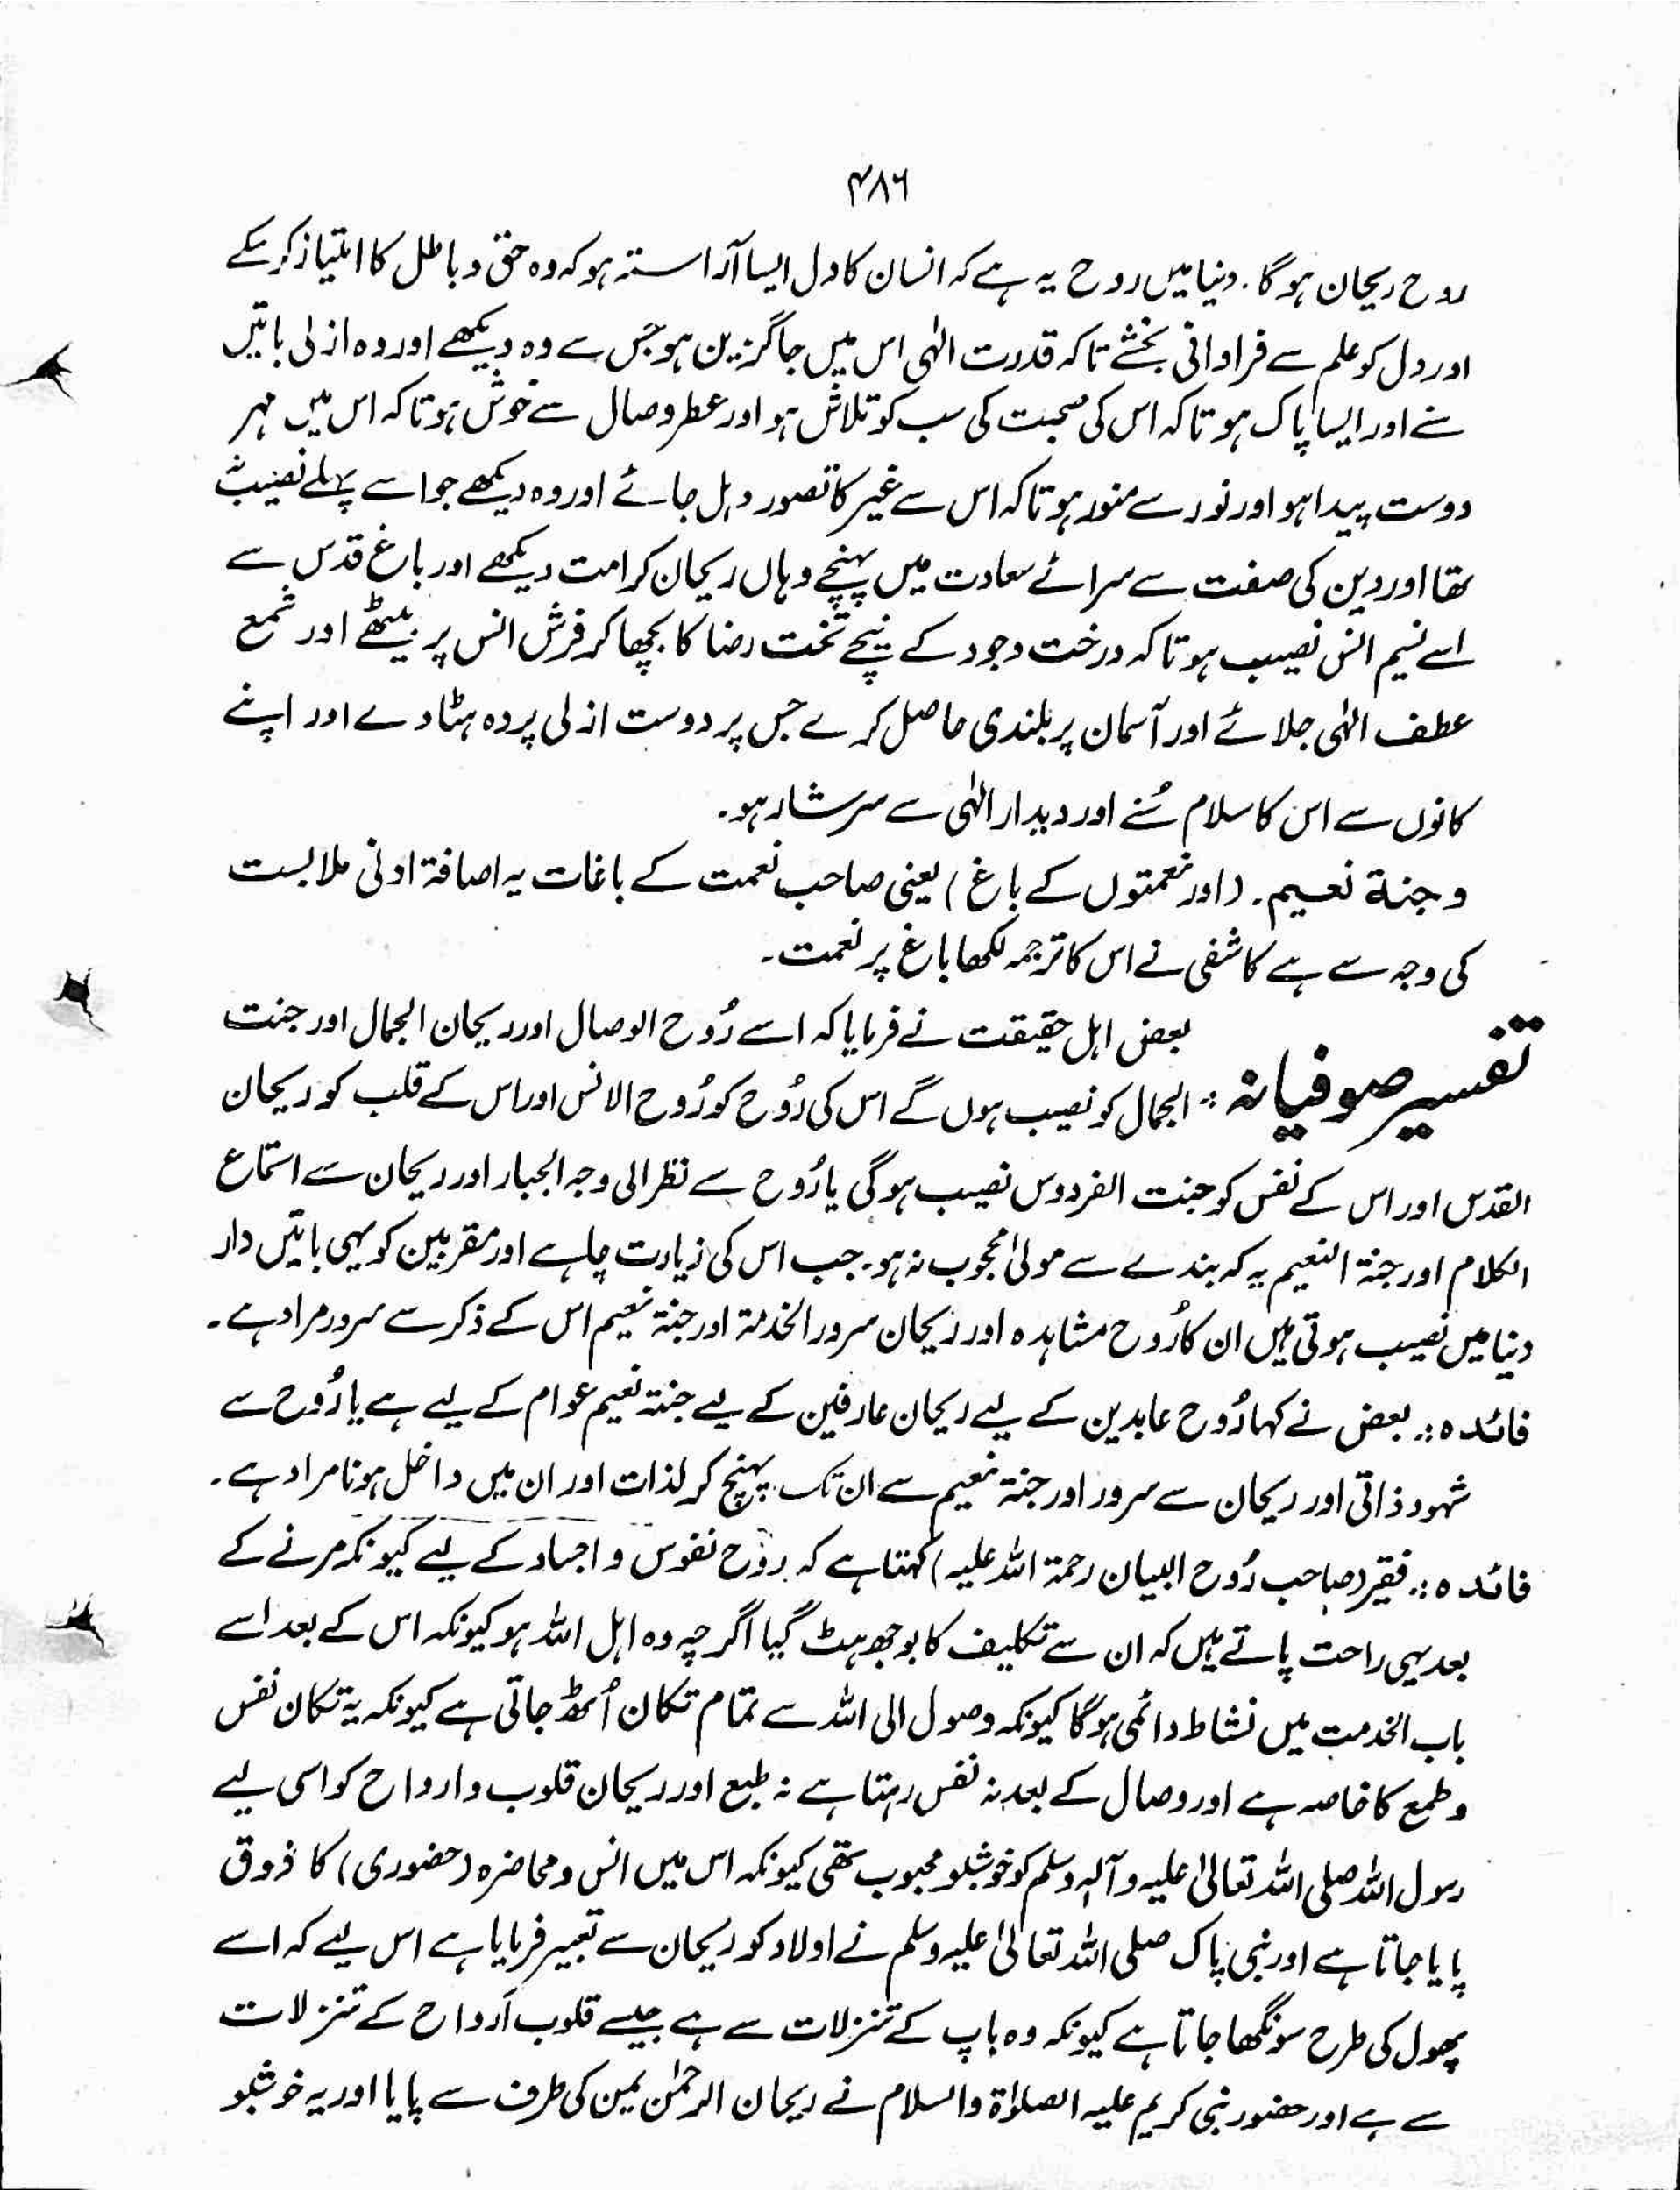 ۴۸۶
روح ریحان ہوگا. دنیا میں روح یہ ہے کہ انسان کا دل ایسا آراستہ ہو کہ وہ حق و باطل کا امتیاز کر سکے
اور دل کو علم سے فراوانی بخشے تا کہ قدرت الٰہی اس میں جاگزین ہو جس سے وہ دیکھے اور وہ ازلی باتیں
سنے اور ایسا پاک ہو تا کہ اس کی صحبت کی سب کو تلاش ہو اور عطر وصال سے خوش ہو تا کہ اس میں مہر
دوست پیدا ہو اور نور سے منور ہو تا کہ اس سے غیر کا تصور دہل جائے اور وہ دیکھے جو اسے پہلے نصیب
تھا اور دین کی صفت سے سرائے سعادت میں پہنچے وہاں ریحان کرامت دیکھے اور باغ قدس سے
اسے نسیم انس نصیب ہو تا کہ درخت وجود کے نیچے تخت رضا کا بچھا کر فرش انس پر بیٹھے اور شمع
عطف الٰہی جلائے اور آسمان پر بلندی حاصل کرے جس پر دوست ازلی پردہ ہٹا دے اور اپنے
کانوں سے اس کا سلام سُنے اور دیدار الٰہی سے سرشار ہو۔
و جنة نعیم. (اور نعمتوں کے باغ) یعنی صاحب نعمت کے باغات یہ اضافۃ ادنی ملابست
کی وجہ سے ہے کاشفی نے اس کا ترجمہ لکھا باغ پر نعمت۔
تفسیر صوفیانہ : بعض اہل حقیقت نے فرمایا کہ اسے رُوح الوصال اور ریحان الجمال اور جنت
الجمال کو نصیب ہوں گے اس کی رُوح کو رُوح الانس اور اس کے قلب کو ریحان
القدس اور اس کے نفس کو جنت الفردوس نصیب ہوگی یا رُوح سے نظر الی وجہ الجبار اور ریحان سے استماع
الکلام اور جنۃ النعیم یہ کہ بندے سے مولیٰ محجوب نہ ہو۔ جب اس کی زیارت چاہے اور مقربین کو یہی باتیں دار
دنیا میں نصیب ہوتی ہیں ان کا رُوح مشاہدہ اور ریحان سرور الخدمۃ اور جنۃ نعیم اس کے ذکر سے سرور مراد ہے۔
فائدہ :. بعض نے کہا رُوح عابدین کے لیے ریحان عارفین کے لیے جنۃ نعیم عوام کے لیے ہے یا رُوح سے
شہود ذاتی اور ریحان سے سرور اور جنۃ نعیم سے ان تک پہنچ کر لذات اور ان میں داخل ہونا مراد ہے۔
فائدہ :. فقیر (صاحب رُوح البیان رحمۃ اللہ علیہ) کہتا ہے کہ روح نفوس و اجساد کے لیے کیونکہ مرنے کے
بعد یہی راحت پاتے ہیں کہ ان سے تکلیف کا بوجھ ہٹ گیا اگرچہ وہ اہل اللہ ہو کیونکہ اس کے بعد اسے
باب الخدمت میں نشاط دائمی ہوگا کیونکہ وصول الی اللہ سے تمام تکان اُٹھ جاتی ہے کیونکہ یہ تکان نفس
و طمع کا خاصہ ہے اور وصال کے بعد نہ نفس رہتا ہے نہ طبع اور ریحان قلوب و ارواح کو اسی لیے
رسول اللہ صلی اللہ تعالیٰ علیہ وآلہ وسلم کو خوشبو محبوب تھی کیونکہ اس میں انس و محاضرہ (حضوری) کا ذوق
پایا جاتا ہے اور نبی پاک صلی اللہ تعالیٰ علیہ وسلم نے اولاد کو ریحان سے تعبیر فرمایا ہے اس لیے کہ اسے
پھول کی طرح سونگھا جاتا ہے کیونکہ وہ باپ کے تنزلات سے ہے جیسے قلوب اَرواح کے تنزلات
سے ہے اور حضور نبی کریم علیہ الصلوٰۃ والسلام نے ریحان الرحمٰن یمین کی طرف سے پایا اور یہ خوشبو